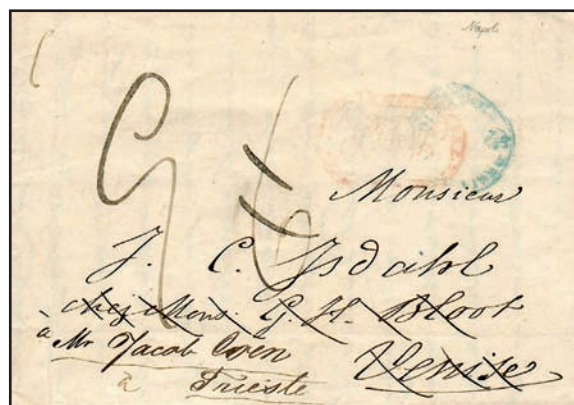 Napoli
Monsieur
J. C. Isdahl
chez Mons. G. H. Bloot
à Mr Jacob Coën
Venise
à Trieste